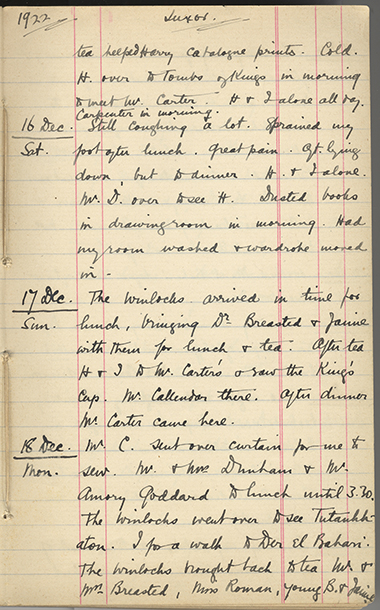 1922 Luxor.
tea helped Harry catalogue prints. Cold.
H. over to tombs of Kings in morning
to meet Mr. Carter. H & I alone all day.
Carpenter in morning.
16 Dec. Still coughing a lot. Sprained my
Sat. foot after lunch. Great pain. Aft. lying
down, but to dinner. H. & I alone.
Mr. D. over to see H. Dusted books
in drawingroom in morning. Had
my room washed & wardrobe moved
in -
17 Dec. The Winlocks arrived in time for
Sun. lunch, bringing Dr. Breasted & Jamie
with them for lunch & tea. After tea
H & I to Mr. Carter's & saw the King's
Cup. Mr. Callendar there. After dinner
Mr. Carter came here.
18 Dec. Mr. C. sent over curtain for me to
Mon. sew. Mr. & Mrs Dunham & Mr.
Amory Goddard to lunch until 3.30.
The Winlocks went over to see Tutankh-
aton. I for a walk to Der El Bahari.
The Winlocks brought back to tea Mr &
Mrs Breasted, Miss Roman, young B. & Jamie